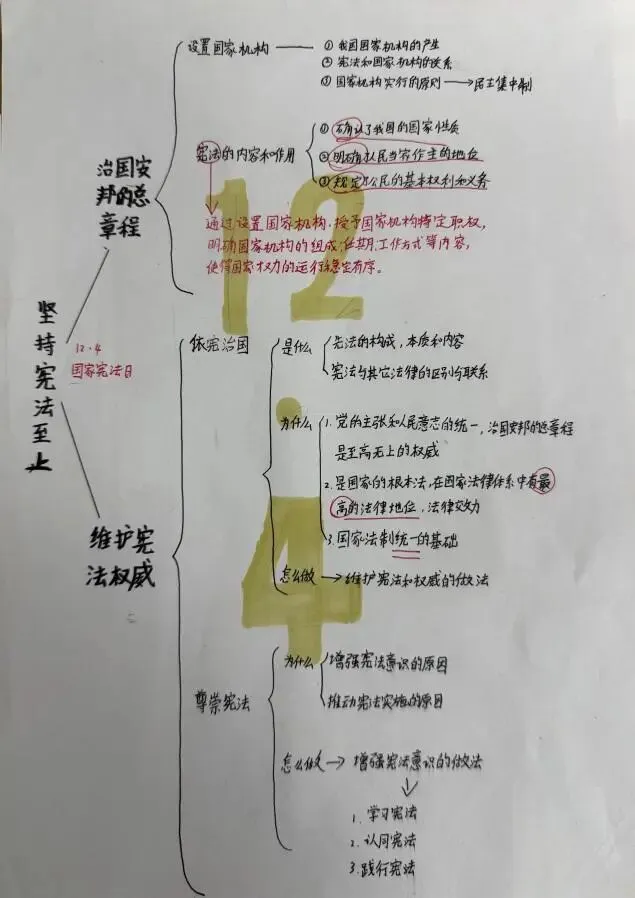 设置国家机构
① 我国国家机构的产生
② 宪法和国家机构的关系
③ 国家机构实行的原则 → 民主集中制
治国安
邦的总
章程
宪法的内容和作用
① 确认了我国的国家性质
② 明确人民当家作主的地位
③ 规定公民的基本权利和义务
通过设置国家机构,授予国家机构特定职权,
明确国家机构的组成,任期,工作方式等内容,
使得国家权力的运行稳定有序。
12
坚持宪法至上
12.4
国家宪法日
维护宪
法权威
依宪治国
是什么
宪法的构成,本质和内容
宪法与其它法律的区别与联系
为什么
1. 党的主张和人民意志的统一,治国安邦的总章程
是至高无上的权威
2. 是国家的根本法,在国家法律体系中有最
高的法律地位,法律效力
3. 国家法制统一的基础
怎么做 → 维护宪法和权威的做法
4
尊崇宪法
为什么
增强宪法意识的原因
推动宪法实施的原因
怎么做 → 增强宪法意识的做法
1. 学习宪法
2. 认同宪法
3. 践行宪法